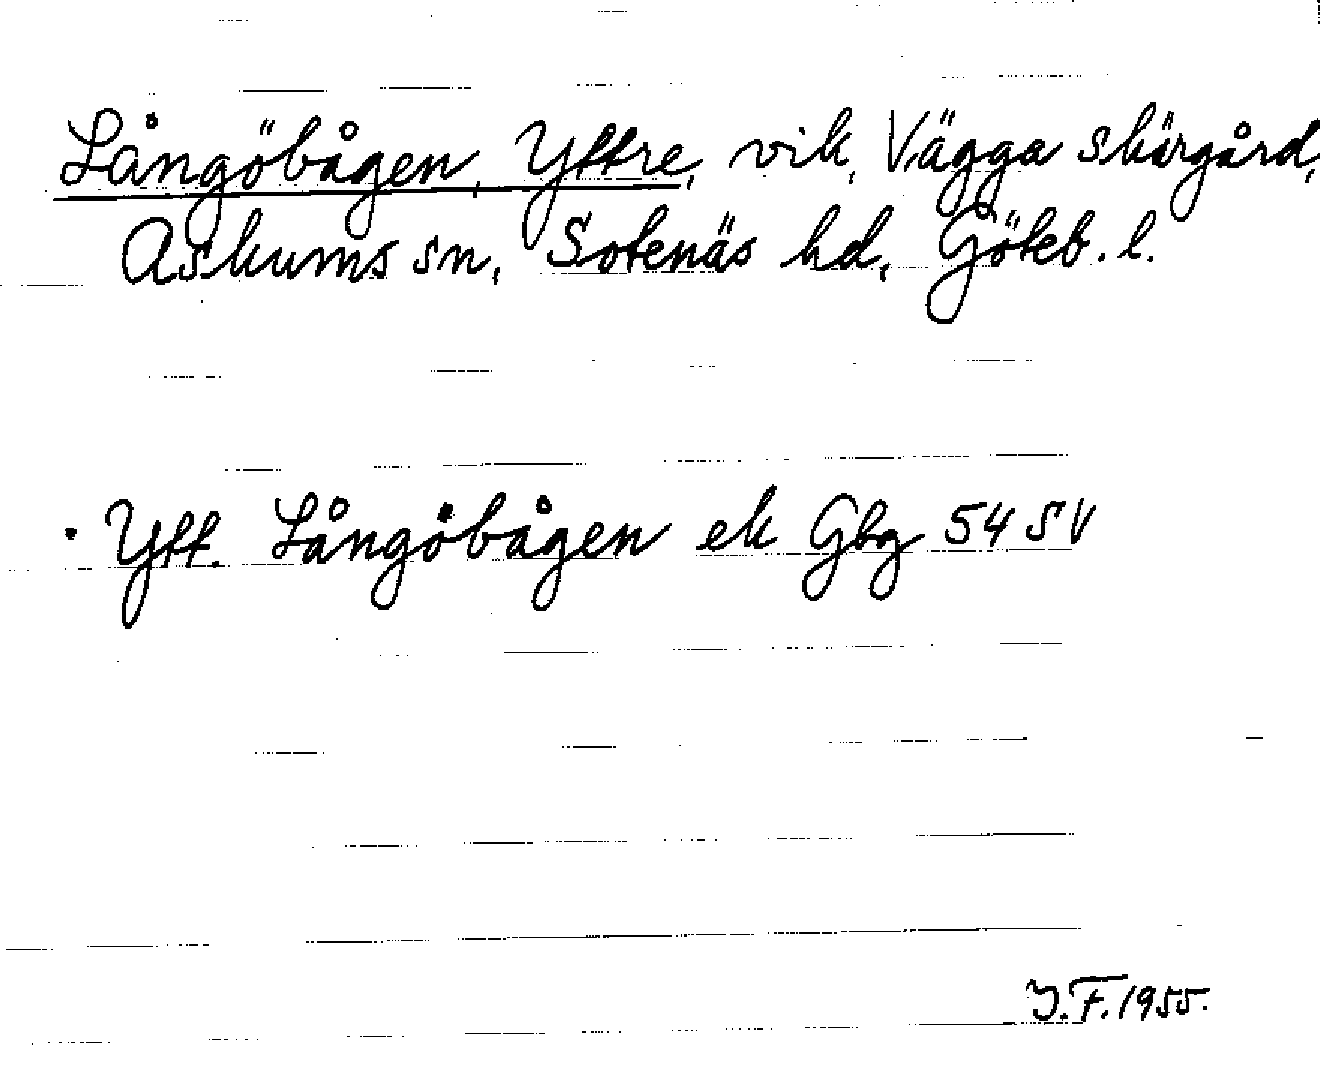 Långöbågen, Yttre, vik, Vägga skärgård,
Askums sn, Sotenäs hd, Göteb. l.
· Ytt. Långöbågen ek Gbg 54 SV
J.F. 1955.